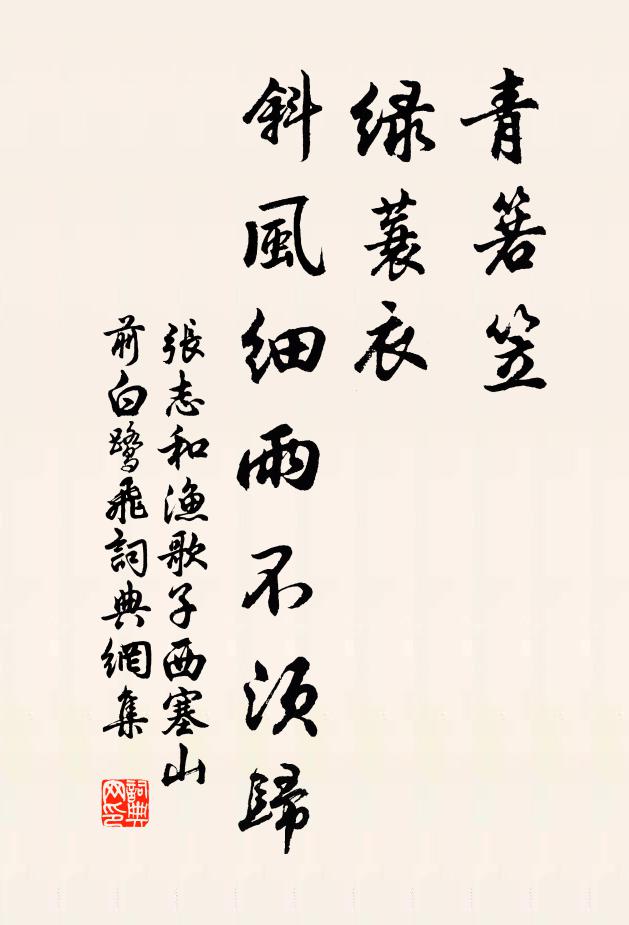 青箬笠
綠蓑衣
斜風細雨不須歸
張志和漁歌子西塞山
前白鷺飛詞典網集
詞典
网印